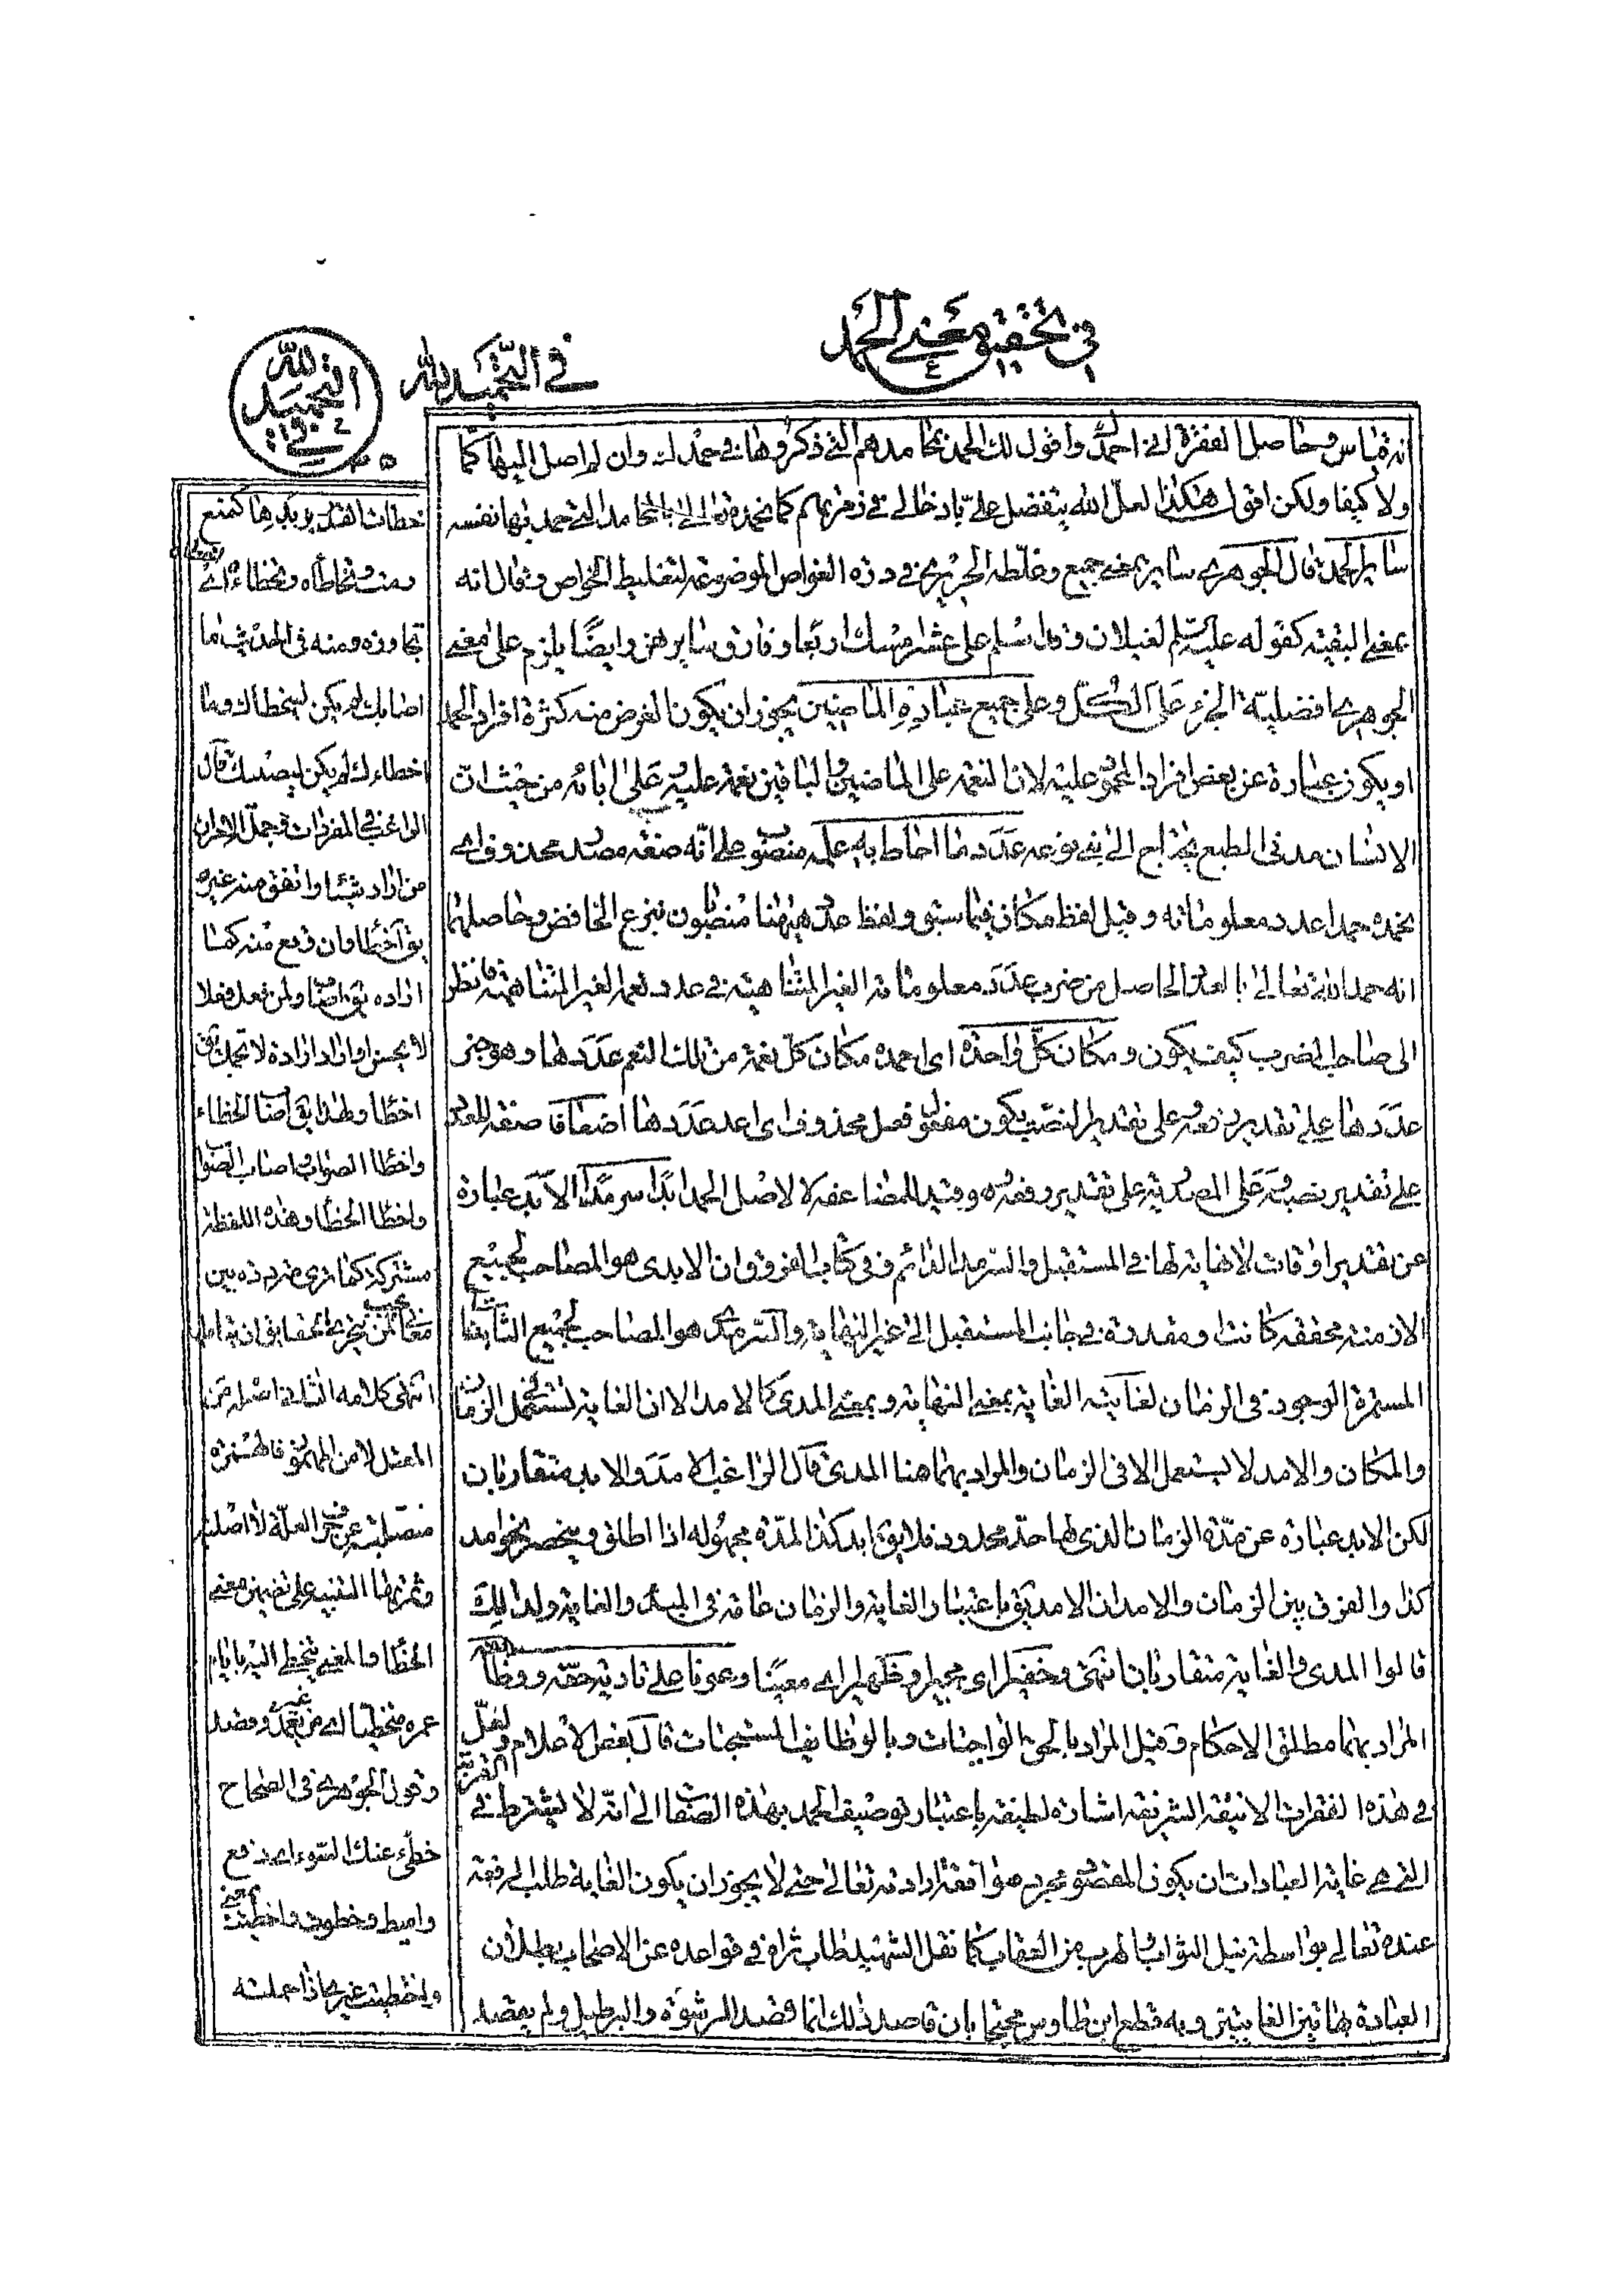 في تحقيق معنى الحمد
في التحميد لله
التحميد لله
انه قياس وحاصل الفقرة اني احمدك واقول لك الحمد بمحامدهم التي ذكروها في حمدك وان لم اصل اليها كما
ولا كيفا ولكن اقول هكذا لعل الله يتفضل علي بادخالي في زمرتهم كما نحمده تعالى بالمحامد التي حمد بها نفسه
ساير الحمد قال الجوهري ساير بمعنى جميع وغلطه الحريري في درة الغواص الموضوعة لتغليط الخواص وقال انه
بمعنى البقية كقوله عليه السلم لغيلان وقد اسلم على عشر امسك اربعا وفارق سايرهن وايضا يلزم على معنى
الجوهري افضلية الجزء على الكل وعلى جميع عباده الماضين يجوز ان يكون الغرض منه كثرة افراد الحمد
او يكون عبارة عن بعض افراد المحمود عليه لان النعمة على الماضين والباقين نعمة عليه على ابائه من حيث ان
الانسان مدني الطبع يحتاج الى بني نوعه عدد ما احاط به علمه منصوب على انه صفة مصدر محذوف اي
نحمده حمدا عدد معلوماته وقيل لفظ مكان فيما سبق ولفظ عدد هيهنا منصوبان بنزع الخافض وحاصلهما
انه حمد الله تعالى بالعدد الحاصل من ضرب عدد معلوماته الغير المتناهية في عدد نعمه الغير المتناهية فانظر
الى صاحب الضرب كيف يكون ومكان كل واحدة اي احمده مكان كل نعمة من تلك النعم عددها وهو خبر
عددها على تقدير رفعه وعلى تقدير النصب يكون مفعول فعل محذوف اي اعد عددها اضعافا صفة للعدد
على تقدير نصبه وعلى المصدرية على تقدير رفعه وقيد للمضاعفة لا لاصل الحمد ابدا سرمدا الابد عبارة
عن تقدير اوقات لا نهاية لها في المستقبل والسرمد الدائم وفي كتاب الفروق ان الابدي هو المصاحب لجميع
الازمنة محققة كانت او مقدرة في جانب المستقبل الى غير النهاية والسرمدي هو المصاحب لجميع الثابتات
المستمرة الوجود في الزمان لغايته الغاية بمعنى النهاية وبمعنى المدى كالامد الا ان الغاية تستعمل في الزمان
والمكان والامد لا يستعمل الا في الزمان والمراد بهما هنا المدى قال الراغب الامد والابد متقاربان
لكن الابد عبارة عن مدة الزمان الذي لها حد محدود فلا يق ابد كذا المدة مجهوله اذا اطلق وينحصر نحو امد
كذا والفرق بين الزمان والامد ان الامد يق باعتبار الغاية والزمان عام في المبدء والغاية ولذلك
قالوا المدى والغاية متقاربان انتهى وخفيرا اي مجيرا وظهيرا اي معينا وعونا على تادية حقه ووظائفه
المراد بهما مطلق الاحكام وقيل المراد بالحق الواجبات وبالوظايف المستحبات قال بعض الاعلام ولعل
في هذه الفقرات الانيقة الشريفة اشارة لطيفة باعتبار توصيف الحمد بهذه الصفات الى انه لا يشترط في القربة
التي هي غاية العبادات ان يكون المقصود مجرد موافقة ارادته تعالى حتى لا يجوز ان يكون الغاية طلب الرفعة
عنده تعالى بواسطة نيل الثواب والهرب من العقاب كما نقل الشهيد طاب ثراه في قواعده عن الاصحاب بطلان
العبادة بهاتين الغايتين وبه قطع ابن طاوس محتجا بان قاصد ذلك انما قصد الرشوة والبرطيل ولم يقصد
خطات القدر بزبدها كمنع
رمت وتخاطأه وتخطاءه اي
تجاوزه ومنه في الحديث ما
اصابك لم يكن ليخطاك وما
اخطاءك لم يكن ليصيبك قال
الراغب في المفردات وجملة الامر ان
من اراد شيئا واتفق منه غيره
يق اخطا وان وقع منه كما
اراده يق اصاب ولمن فعل فعلا
لا يحسن او اراد ارادة لا تجمل يق
اخطا ولهذا يق اصاب الخطاء
واخطا الصواب واصاب الصواب
واخطا الخطأ وهذه اللفظة
مشتركة كما ترى مترددة بين
معان يجب لمن يتحرى الحقايق ان يتاملها
انتهى كلامه
المعتل لا من المهموز فالهمزة
منقلبة عن حرف العلة لا اصلية
الخطأ والمعنى يتخطى اليه بايام
عمره متخطيا
وقول الجوهري في الصحاح
خطئ عنك السوء اي دفع
واميط وخطوت واخطيت بمعنى
وتخطيت غيري اذا حملته